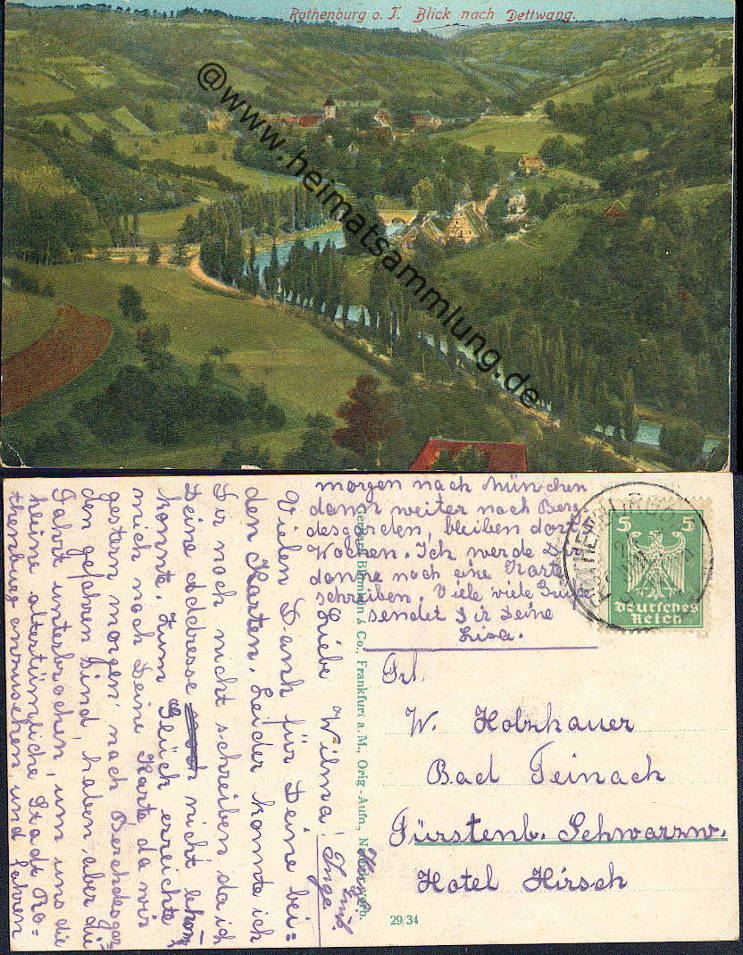 Rothenburg o. T. Blick nach Dettwang.
@www.heimatsammlung.de
Liebe Wilma!
Vielen Dank für Deine bei=
den Karten. Leider konnte ich
Dir noch nicht schreiben da ich
Deine Addresse nicht
konnte. Zum Glück erreichte
mich noch Deine Karte da wir
gestern morgen nach
den gefahren sind, haben aber die
Fahrt unterbrochen, um uns die
kleine altertümliche Stadt Ro-
thenburg anzusehen und fahren
morgen nach München
dann weiter nach Berch
desgarden, bleiben dort
Wochen. Ich werde Dir
dann noch eine Karte
schreiben. Viele viele Grüße
sendet Dir Deine
Lisa.
Inge
Gebrüder & Co., Frankfurt a. M., Orig.-Aufn.,
ROTHENBURG
5 5
Deutsches
Reich
Frl.
W. Holzhauer
Bad Teinach
Fürstenb. Schwarzw.
Hotel Hirsch
29/34